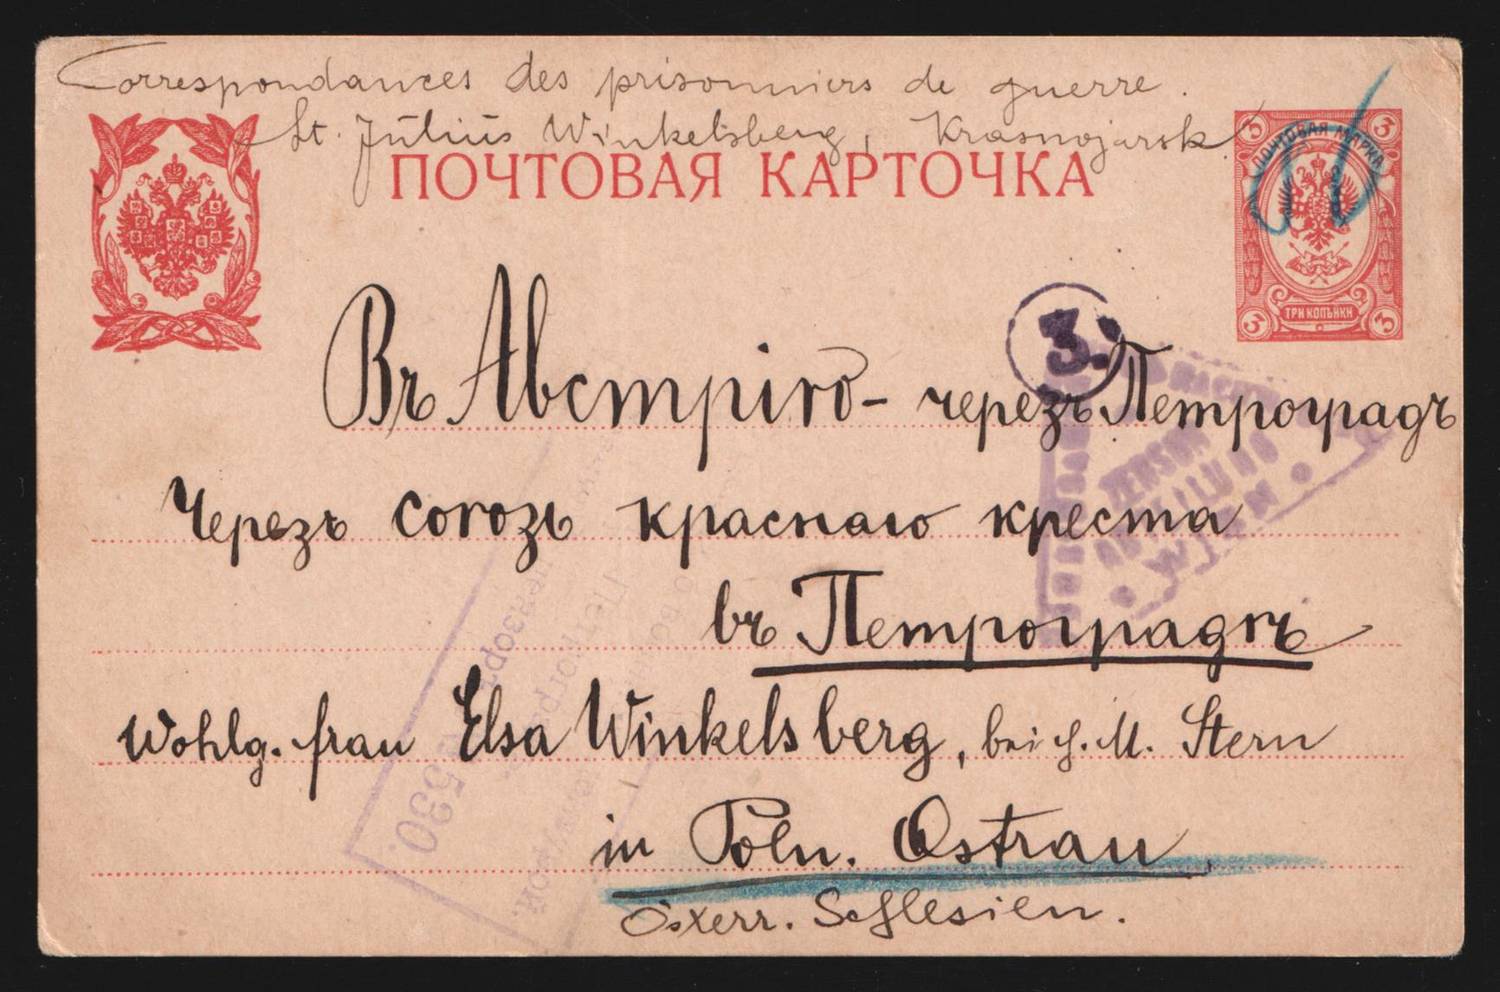 Correspondances des prisonniers de guerre.
Lt. Julius Winkelsberg, Krasnojarsk.
ПОЧТОВАЯ КАРТОЧКА
3 3
ПОЧТОВАЯ МАРКА
ТРИ КОПѢЙКИ
3 3
3.
Въ Австрiю - черезъ Петроградъ
Черезъ союзъ краснаго креста
въ Петроградъ
Wohlg. frau Elsa Winkelsberg, bei H. M. Stern
in Poln. Ostrau.
Österr. Schlesien.
ZENSUR
ABTEILUNG
WIEN
530.